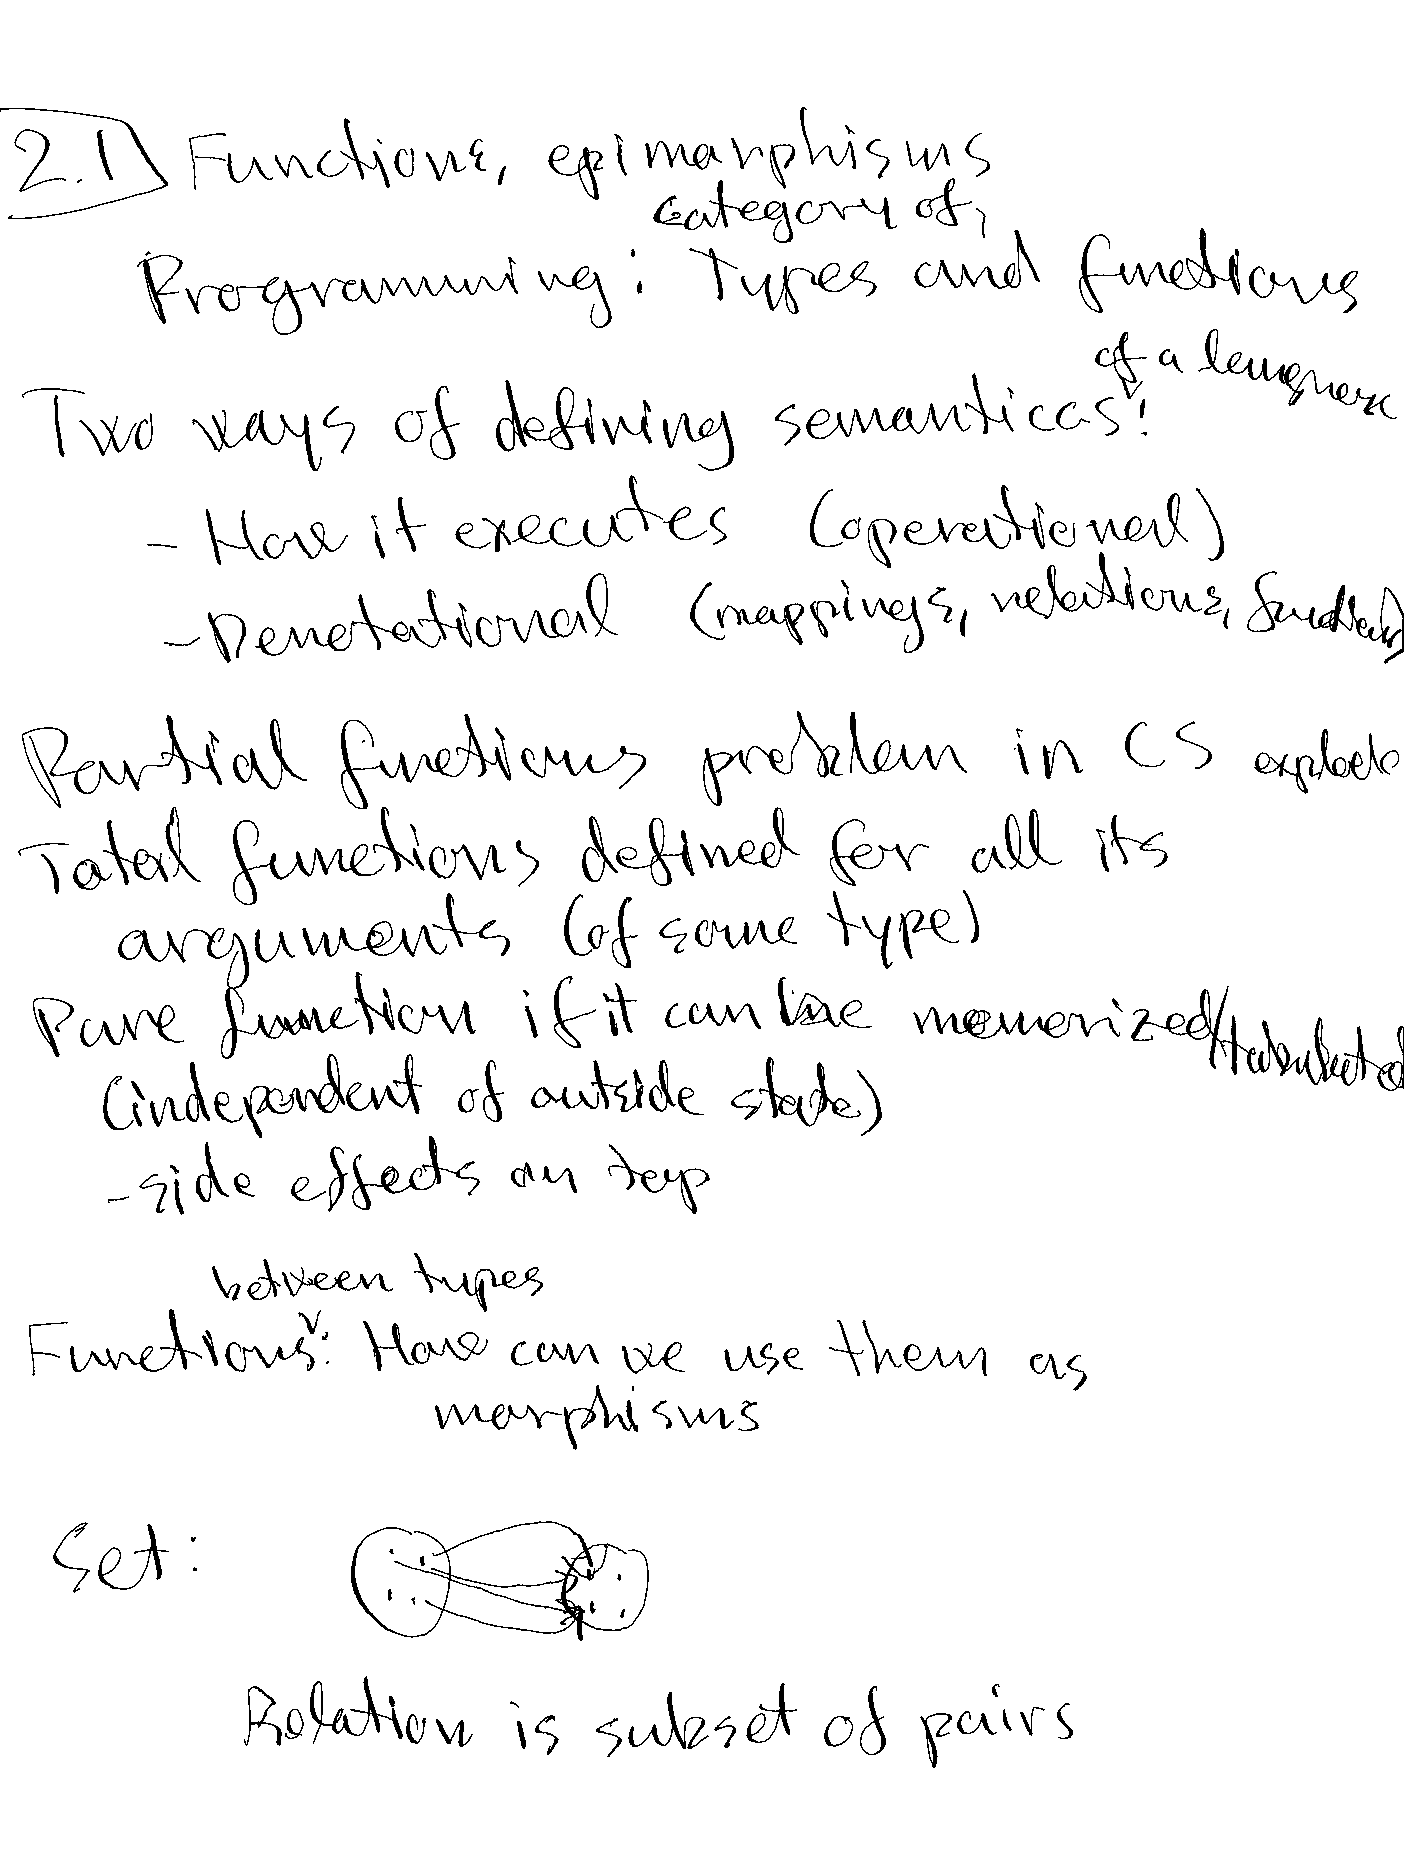 2.1 Functions, epimorphisms
category of
Programming: Types and functions
of a language
Two ways of defining semanticas:
- How it executes (operational)
- Denotational (mappings, relations, functions)
Partial functions problem in CS explode
Total functions defined for all its
arguments (of some type)
Pure function if it can be memorized/tabulated
(independent of outside state)
- side effects on top
between types
Functions: How can we use them as
morphisms
Set:
Relation is subset of pairs